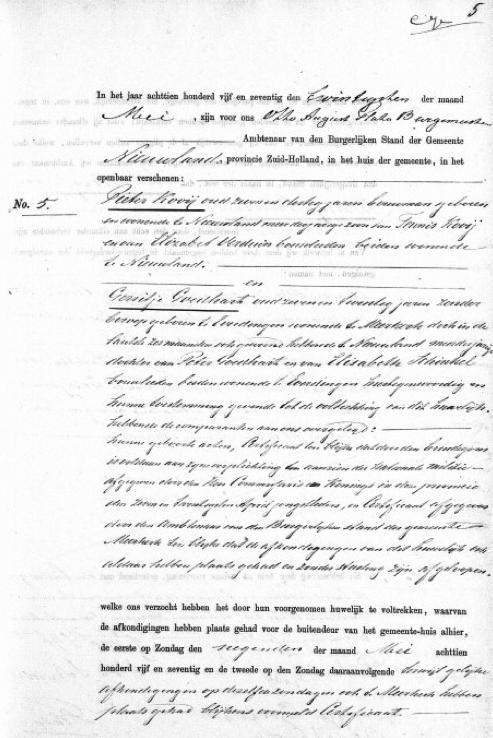 5
In het jaar achttien honderd vijf en zeventig den twintigsten der maand
Mei, zijn voor ons Otto August Burgemeester
Ambtenaar van den Burgerlijken Stand der Gemeente
Nieuwland, provincie Zuid-Holland, in het huis der gemeente, in het
openbaar verschenen:
No. 5.
Pieter Kooij oud zeven en dertig jaren bouwman geboren
en wonende te Nieuwland meerderjarige zoon van Teunis Kooij
en van Elizabet Verduin bouwlieden beiden wonende
te Nieuwland.
en
Gerritje Goedhart oud zeven en twintig jaren zonder
beroep geboren te wonende te Meerkerk doch in de
laatste zes maanden ook gewoond hebbende te Nieuwland meerderjarige
dochter van Peter Goedhart en van Elisabeth Schinkel
bouwlieden beiden wonende te alhier tegenwoordig en
hunne toestemming gevende tot de voltrekking van dit huwelijk.
hebbende de comparanten aan ons overgelegd:
hunne geboorte acten, Certificaat ten blijke dat door den bruidegom
is voldaan aan zijne verplichting ten aanzien der Nationale militie
afgegeven door den Heer Commissaris des Konings in de provincie
den zeven en twintigsten April jongstleden, en Certificaat afgegeven
door den Ambtenaar van den Burgerlijken Stand der gemeente
Meerkerk ten blijke dat de afkondigingen van dit huwelijk ook
aldaar hebben plaats gehad en zonder stuiting zijn afgeloopen.
welke ons verzocht hebben het door hun voorgenomen huwelijk te voltrekken, waarvan
de afkondigingen hebben plaats gehad voor de buitendeur van het gemeente-huis alhier,
de eerste op Zondag den negenden der maand Mei achttien
honderd vijf en zeventig en de tweede op den Zondag daaraanvolgende terwijl gelijke
afkondigingen op dezelfde zondagen ook te Meerkerk hebben
plaats gehad blijkens vermeld Certificaat.